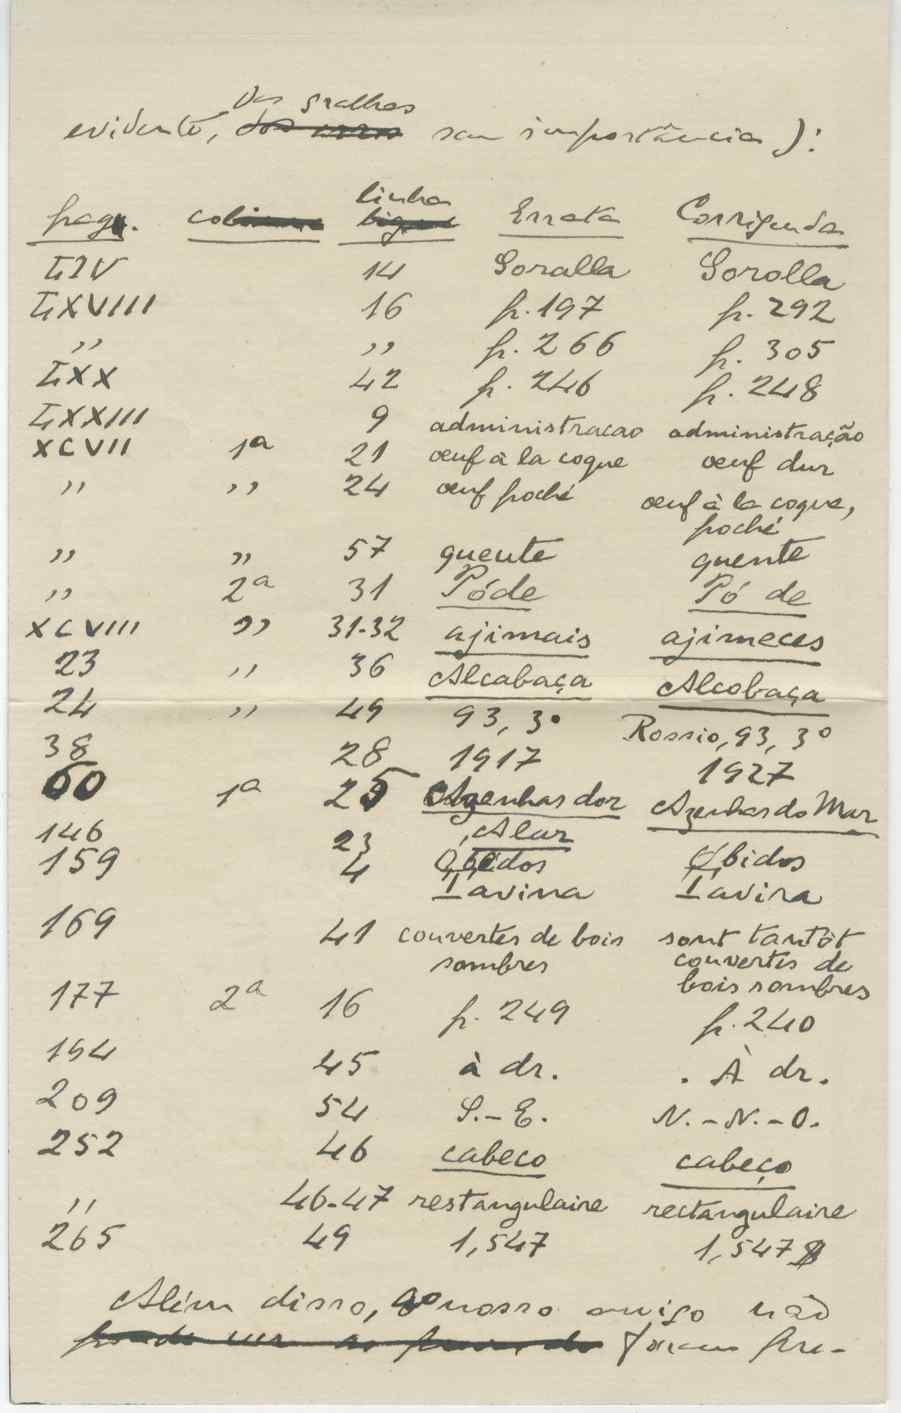 das gralhas
evidente, dos erros sem importância):
linha
pags. col Errata Corrigenda
LIV 14 Soralla Sorolla
LXVIII 16 p. 197 p. 292
,, ,, p. 266 p. 305
LXX 42 p. 246 p. 248
LXXIII 9 administracao administração
XCVII 1ª 21 œuf à la coque œuf dur
,, ,, 24 œuf poché œuf à la coque,
poché
,, ,, 57 queute quente
,, 2ª 31 Póde Pó de
XCVIII ,, 31-32 ajimais ajimeces
23 ,, 36 Alcabaça Alcobaça
24 ,, 49 93, 3º Rossio, 93, 3º
38 28 1917 1927
60 1ª 25 Azenhas dor Azenhas do Mar
Alar
146 23 Óbidos Óbidos
159 4 Tavina Tavira
169 41 couvertes de bois sont tantôt
sombres couvertes de
bois sombres
177 2ª 16 p. 249 p. 240
194 45 à dr. . À dr.
209 54 S.-E. N.-N.-O.
252 46 cabeco cabeço
,, 46-47 restangulaire rectangulaire
265 49 1,547 1,547$
Além disso, ao nosso amigo não
foram pre-